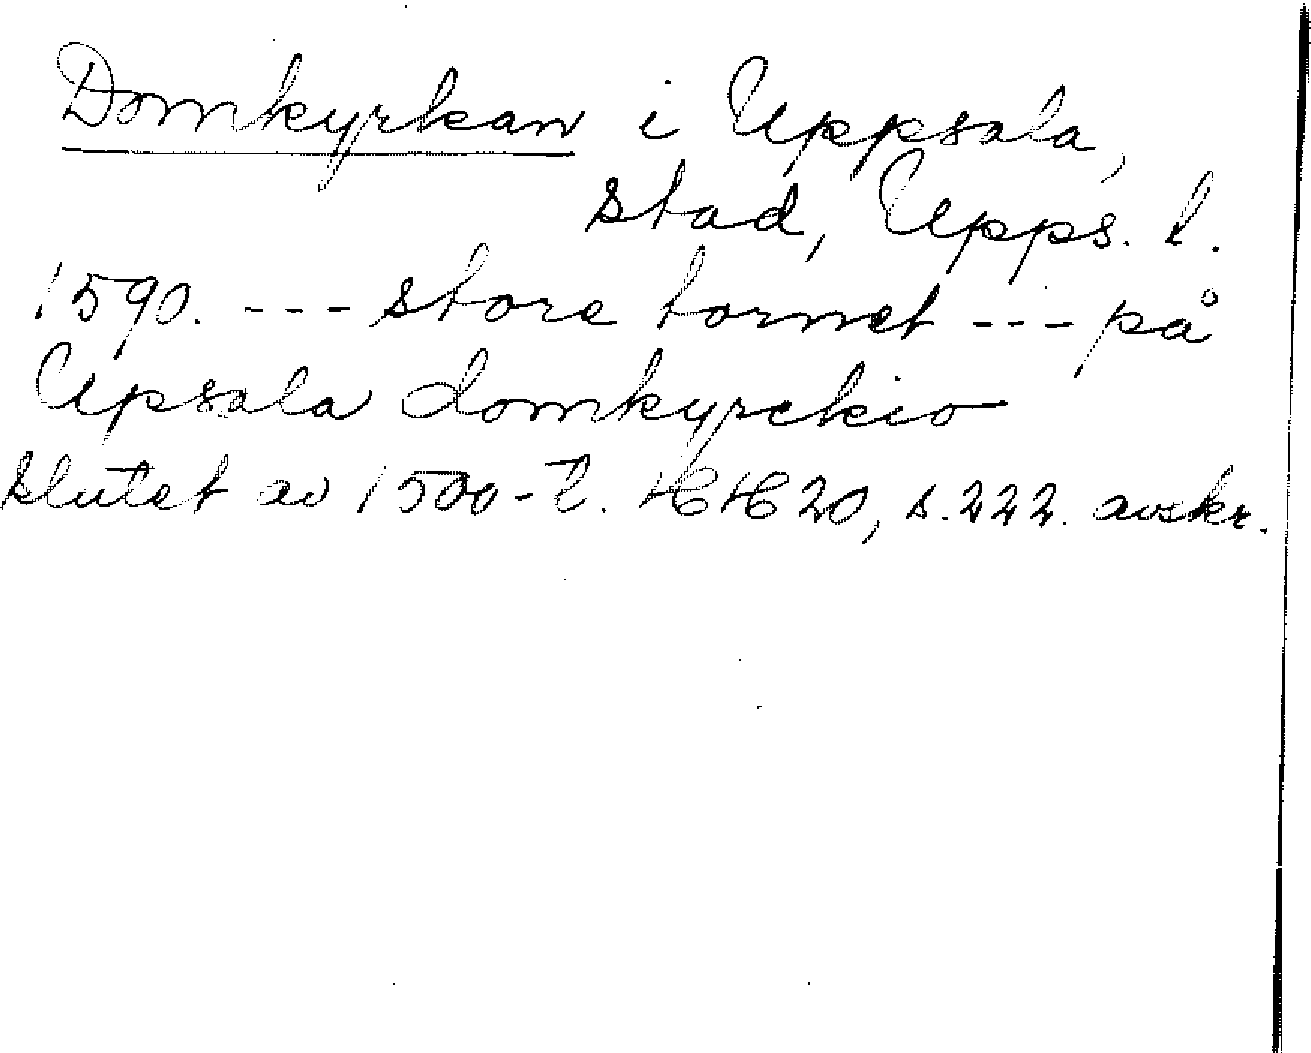 Domkyrkan i Uppsala,
stad, Upps. l.
1590. --- store tornet --- på
Upsala domkyrckio
slutet av 1500-t. HH 20, s. 222. avskr.